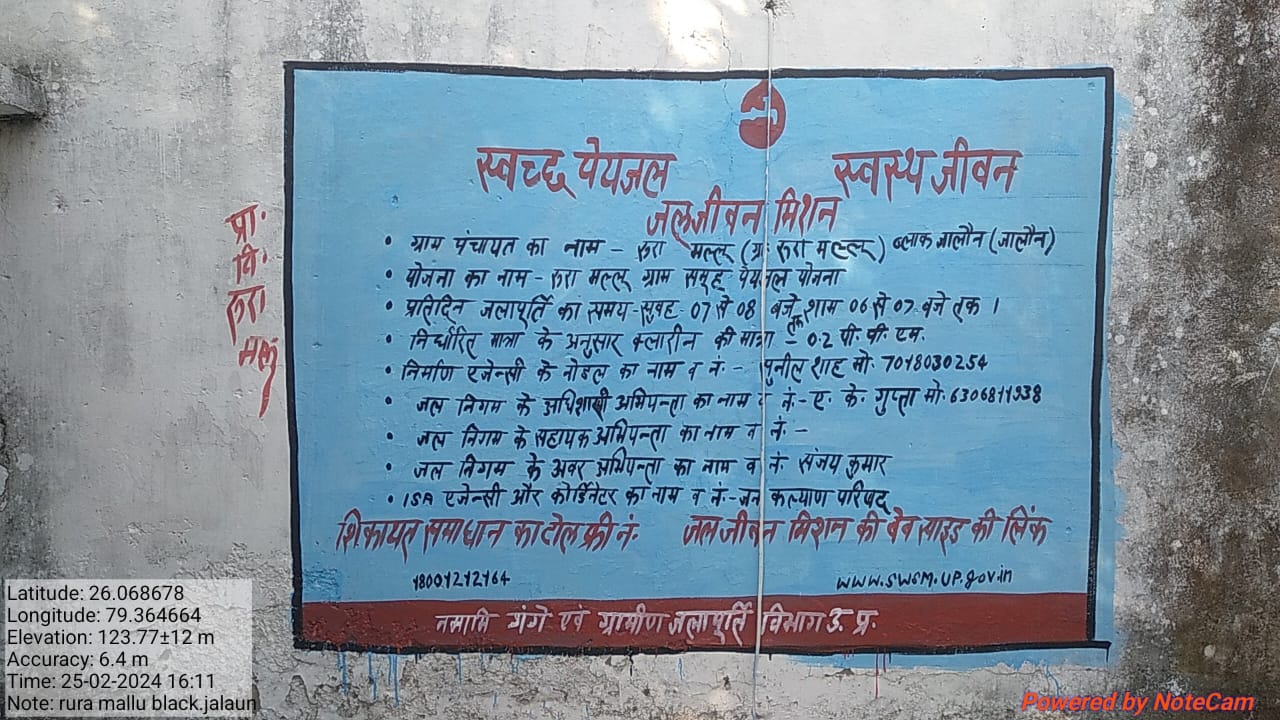 स्वच्छ पेयजल स्वस्थ जीवन
जलजीवन मिशन
• ग्राम पंचायत का नाम - रुरा मल्लू (ग्रा॰ रुरा मल्लू) ब्लाक जालौन (जालौन)
• योजना का नाम - रुरा मल्लू ग्राम समूह पेयजल योजना
• प्रतिदिन जलापूर्ति का समय - सुबह 07 से 08 बजे तक शाम 06 से 07 बजे तक ।
• निर्धारित मात्रा के अनुसार क्लारीन की मात्रा - 0.2 पी. पी. एम.
• निर्माण एजेन्सी के नोडल का नाम व नं॰ - सुनील शाह मो॰ 7018030254
• जल निगम के अधिशासी अभियन्ता का नाम व नं॰ - ए. के. गुप्ता मो॰ 6306811938
• जल निगम के सहायक अभियन्ता का नाम व नं॰ -
• जल निगम के अवर अभियन्ता का नाम व नं॰ संजय कुमार
• ISA एजेन्सी और कोर्डिनेटर का नाम व नं॰ - जन कल्याण परिषद
शिकायत समाधान का टोल फ्री नं॰ जल जीवन मिशन की वेब साइड की लिंक
18001212164 www.swsm.up.gov.in
नमामि गंगे एवं ग्रामीण जलापूर्ति विभाग उ. प्र.
प्रा.
वि.
रुरा
मल्लू
Latitude: 26.068678
Longitude: 79.364664
Elevation: 123.77±12 m
Accuracy: 6.4 m
Time: 25-02-2024 16:11
Note: rura mallu black.jalaun
Powered by NoteCam